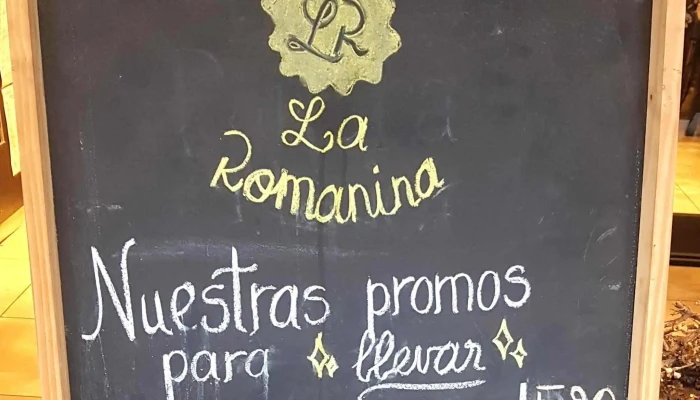 LR
La
Romanina
Nuestras promos
para llevar